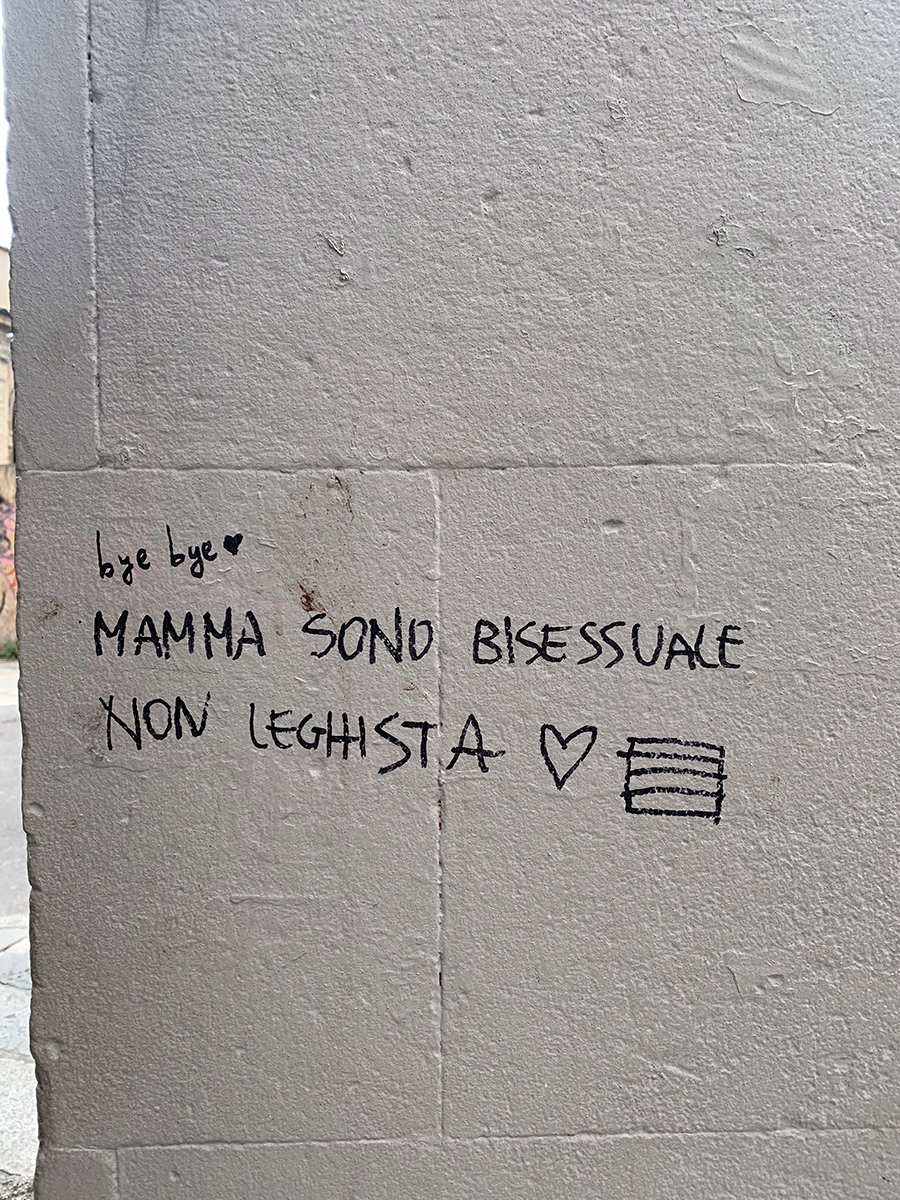 bye bye ♥
MAMMA SONO BISESSUALE
NON LEGHISTA ♡